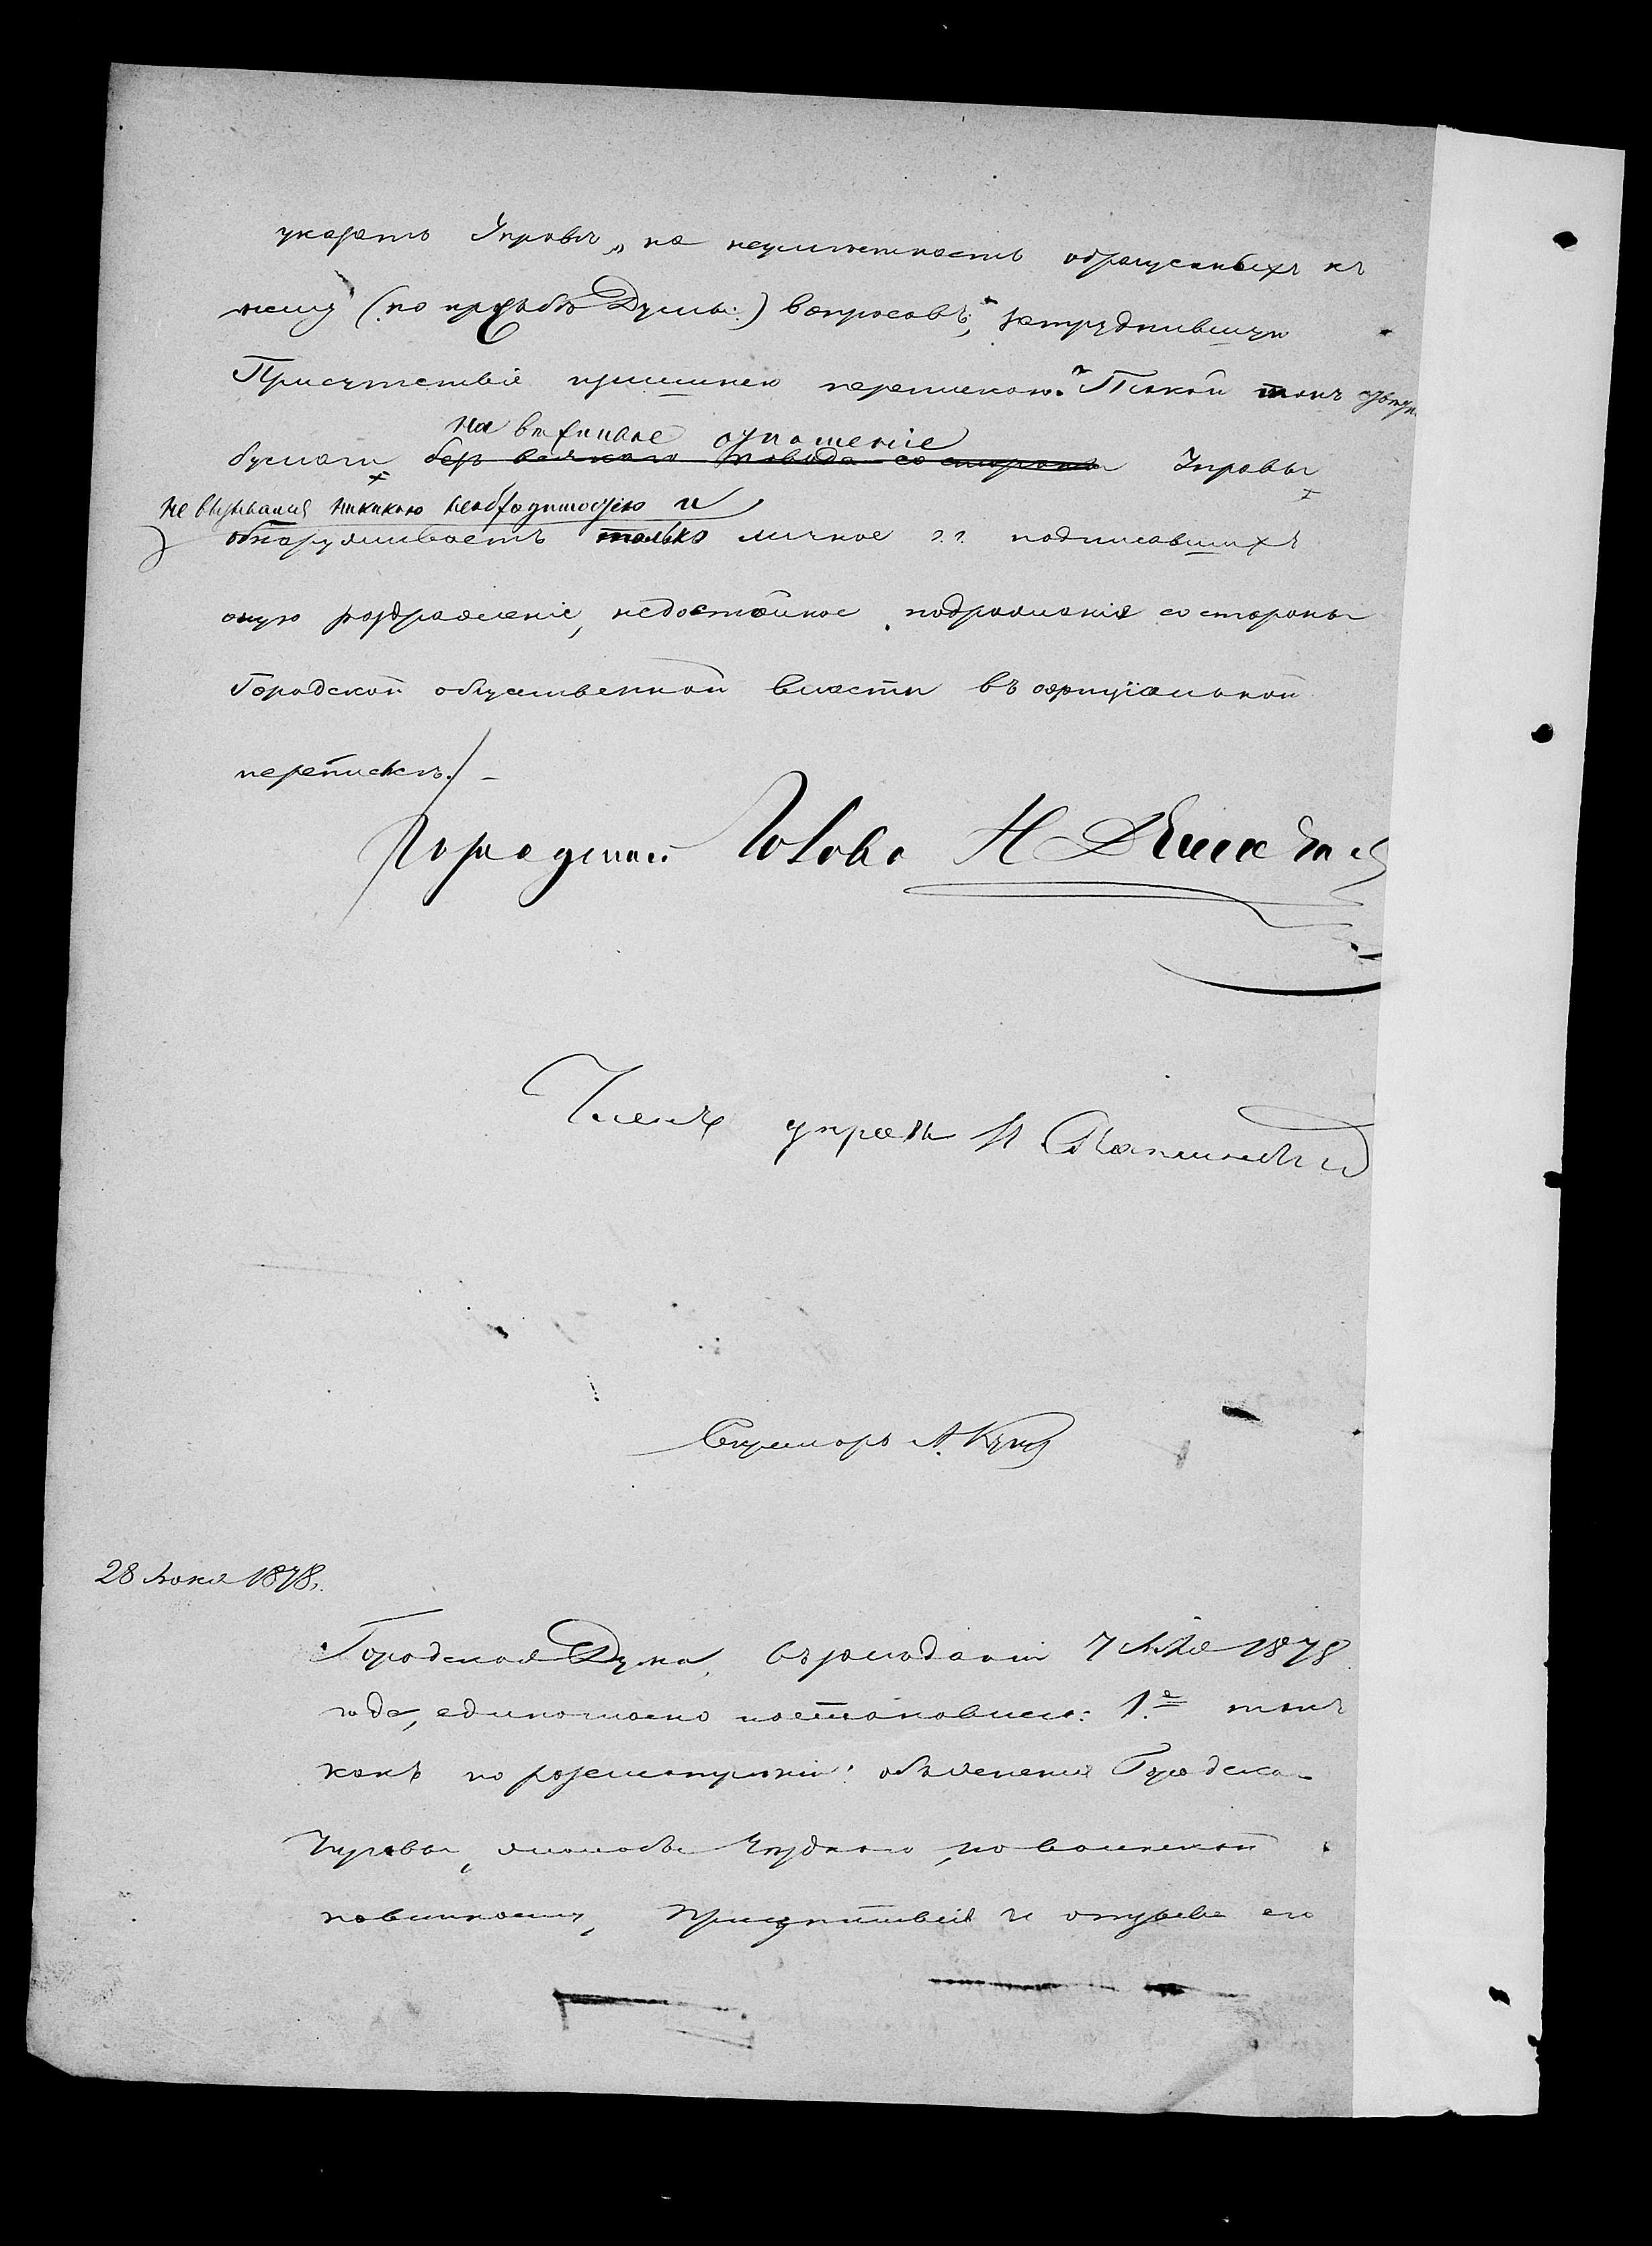 указать Управѣ „на неумѣстность обращенныхъ къ
нему (по просьбѣ Думы) вопросовъ, затруднившихъ
Присутствіе излишнею перепискою.“ Такой тонъ
на вѣжливое отношеніе
бумаги без всякаго повода со стороны Управы
не вызываемый никакою необходимостію и
обнаруживаетъ только личное г.г. подписавшихъ
оную раздраженіе, недостойное подражанія со стороны
Городской общественной власти въ оффиціальной
перепискѣ.
Городской Голова Н
Членъ управы
Секретарь А.
28 Июня 1878.
Городская Дума, въ засѣданіи 7 Июля 1878
года, единогласно постановила: 1.е такъ
какъ по разсмотрѣніи объясненія Городской
Управы, жалобы Уѣзднаго по воинской
повинности Присутствія и отзыва его